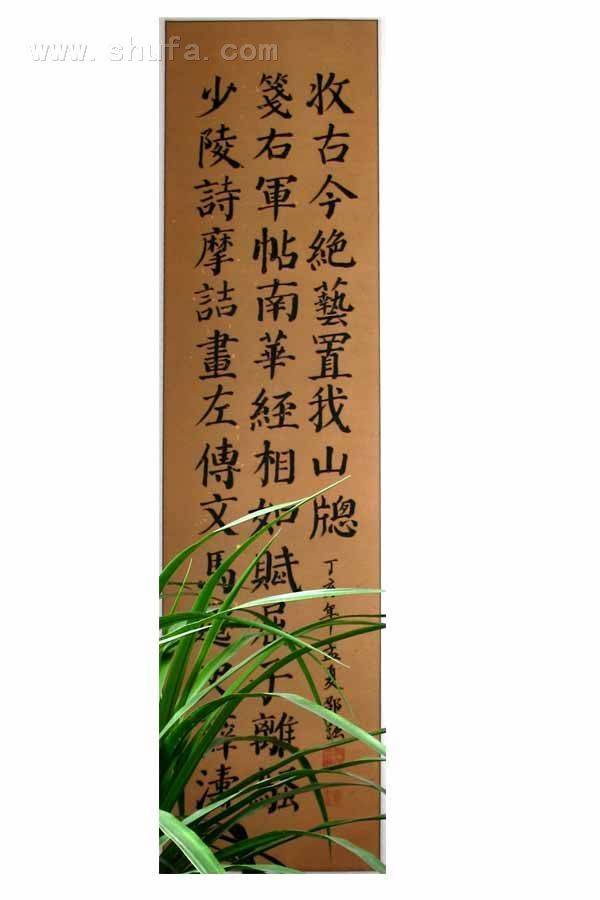 www.shufa.com
少陵詩摩詰畫左傳文馬遷史薛濤
箋右軍帖南華經相如賦屈子離騷
收古今絕藝置我山牕
丁亥年孟夏